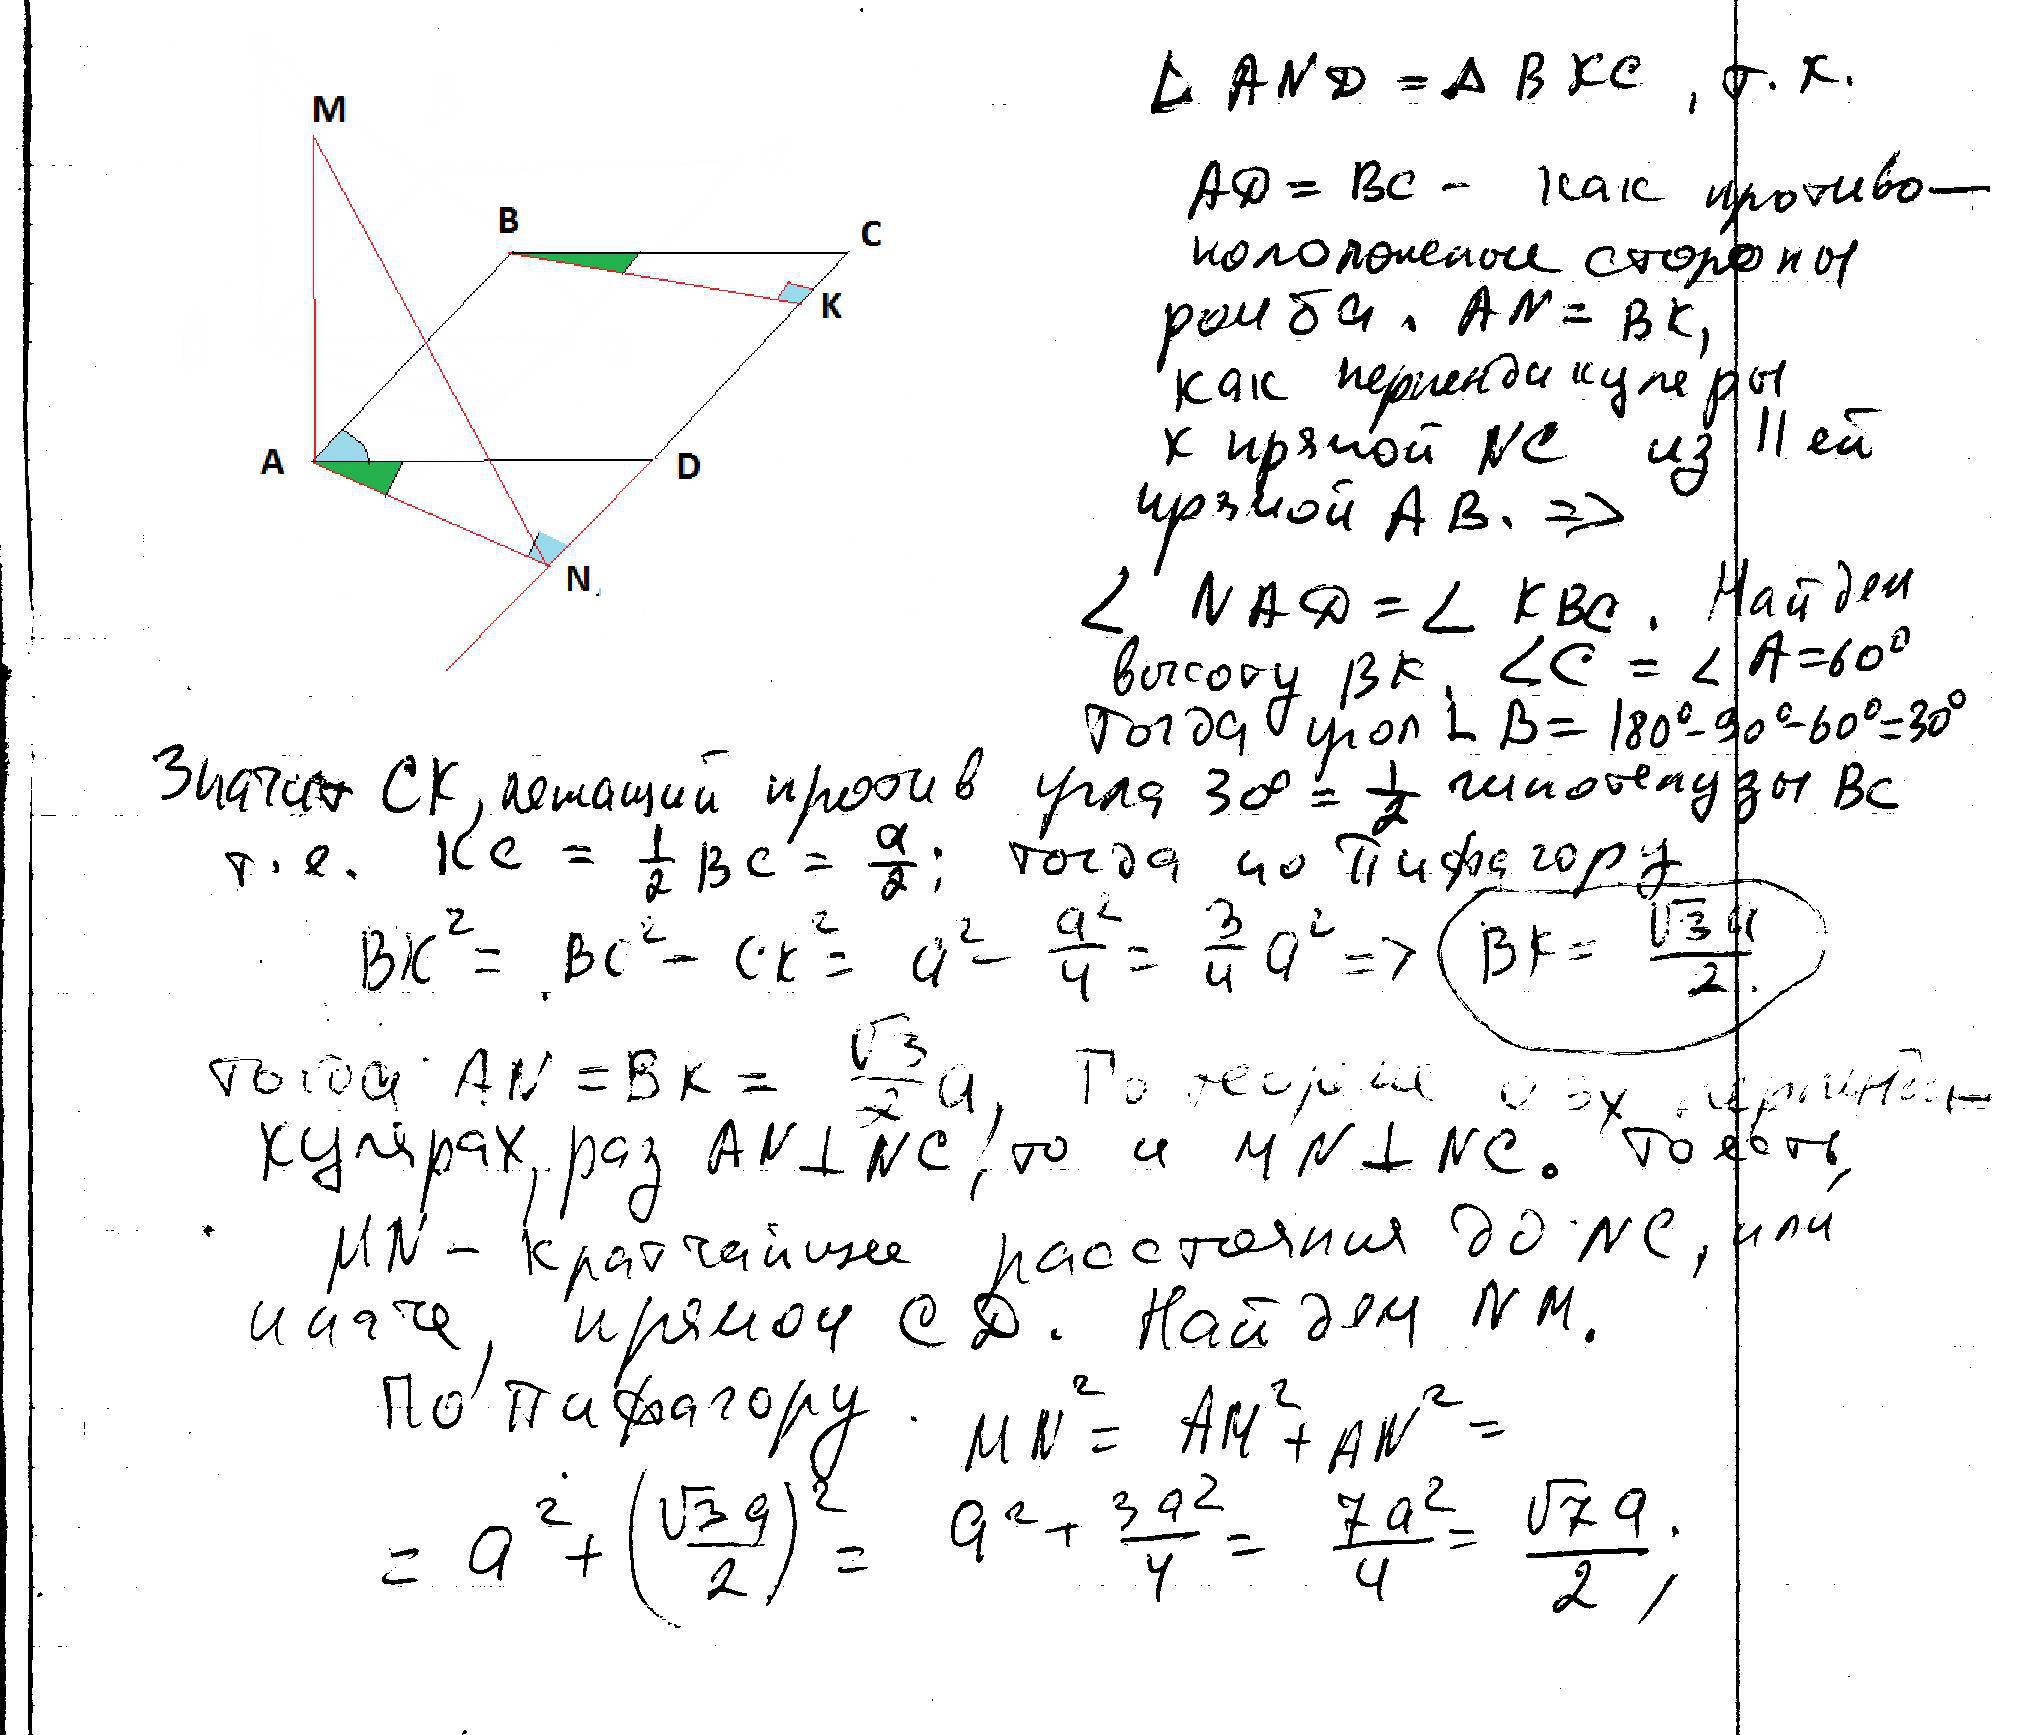 M
B
C
K
A
D
N
Δ AND = Δ BKC, т.к.
AD = BC - как противо-
положеные стороны
ромба. AN = BK,
как перпендикуляры
к прямой NC из || ей
прямой AB. =>
∠ NAD = ∠ KBC. Найдем
высоту BK, ∠C = ∠A = 60°
тогда угол ∠B = 180°-90°-60°=30°
Значит CK, лежащий против угла 30° = 1/2 гипотенузы BC
т.е. KC = 1/2 BC = a/2; тогда по Пифагору
BK² = BC² - CK² = a² - a²/4 = 3/4 a² => BK = √3a/2.
тогда AN = BK = √3/2 a, По теореме о 3х перпенди-
кулярах, раз AN ⊥ NC, то и MN ⊥ NC. То есть,
MN - кратчайшее расстояния до NC, или
иначе, прямой CD. Найдем NM.
По Пифагору MN² = AM² + AN² =
= a² + (√3a/2)² = a² + 3a²/4 = 7a²/4 = √7a/2;